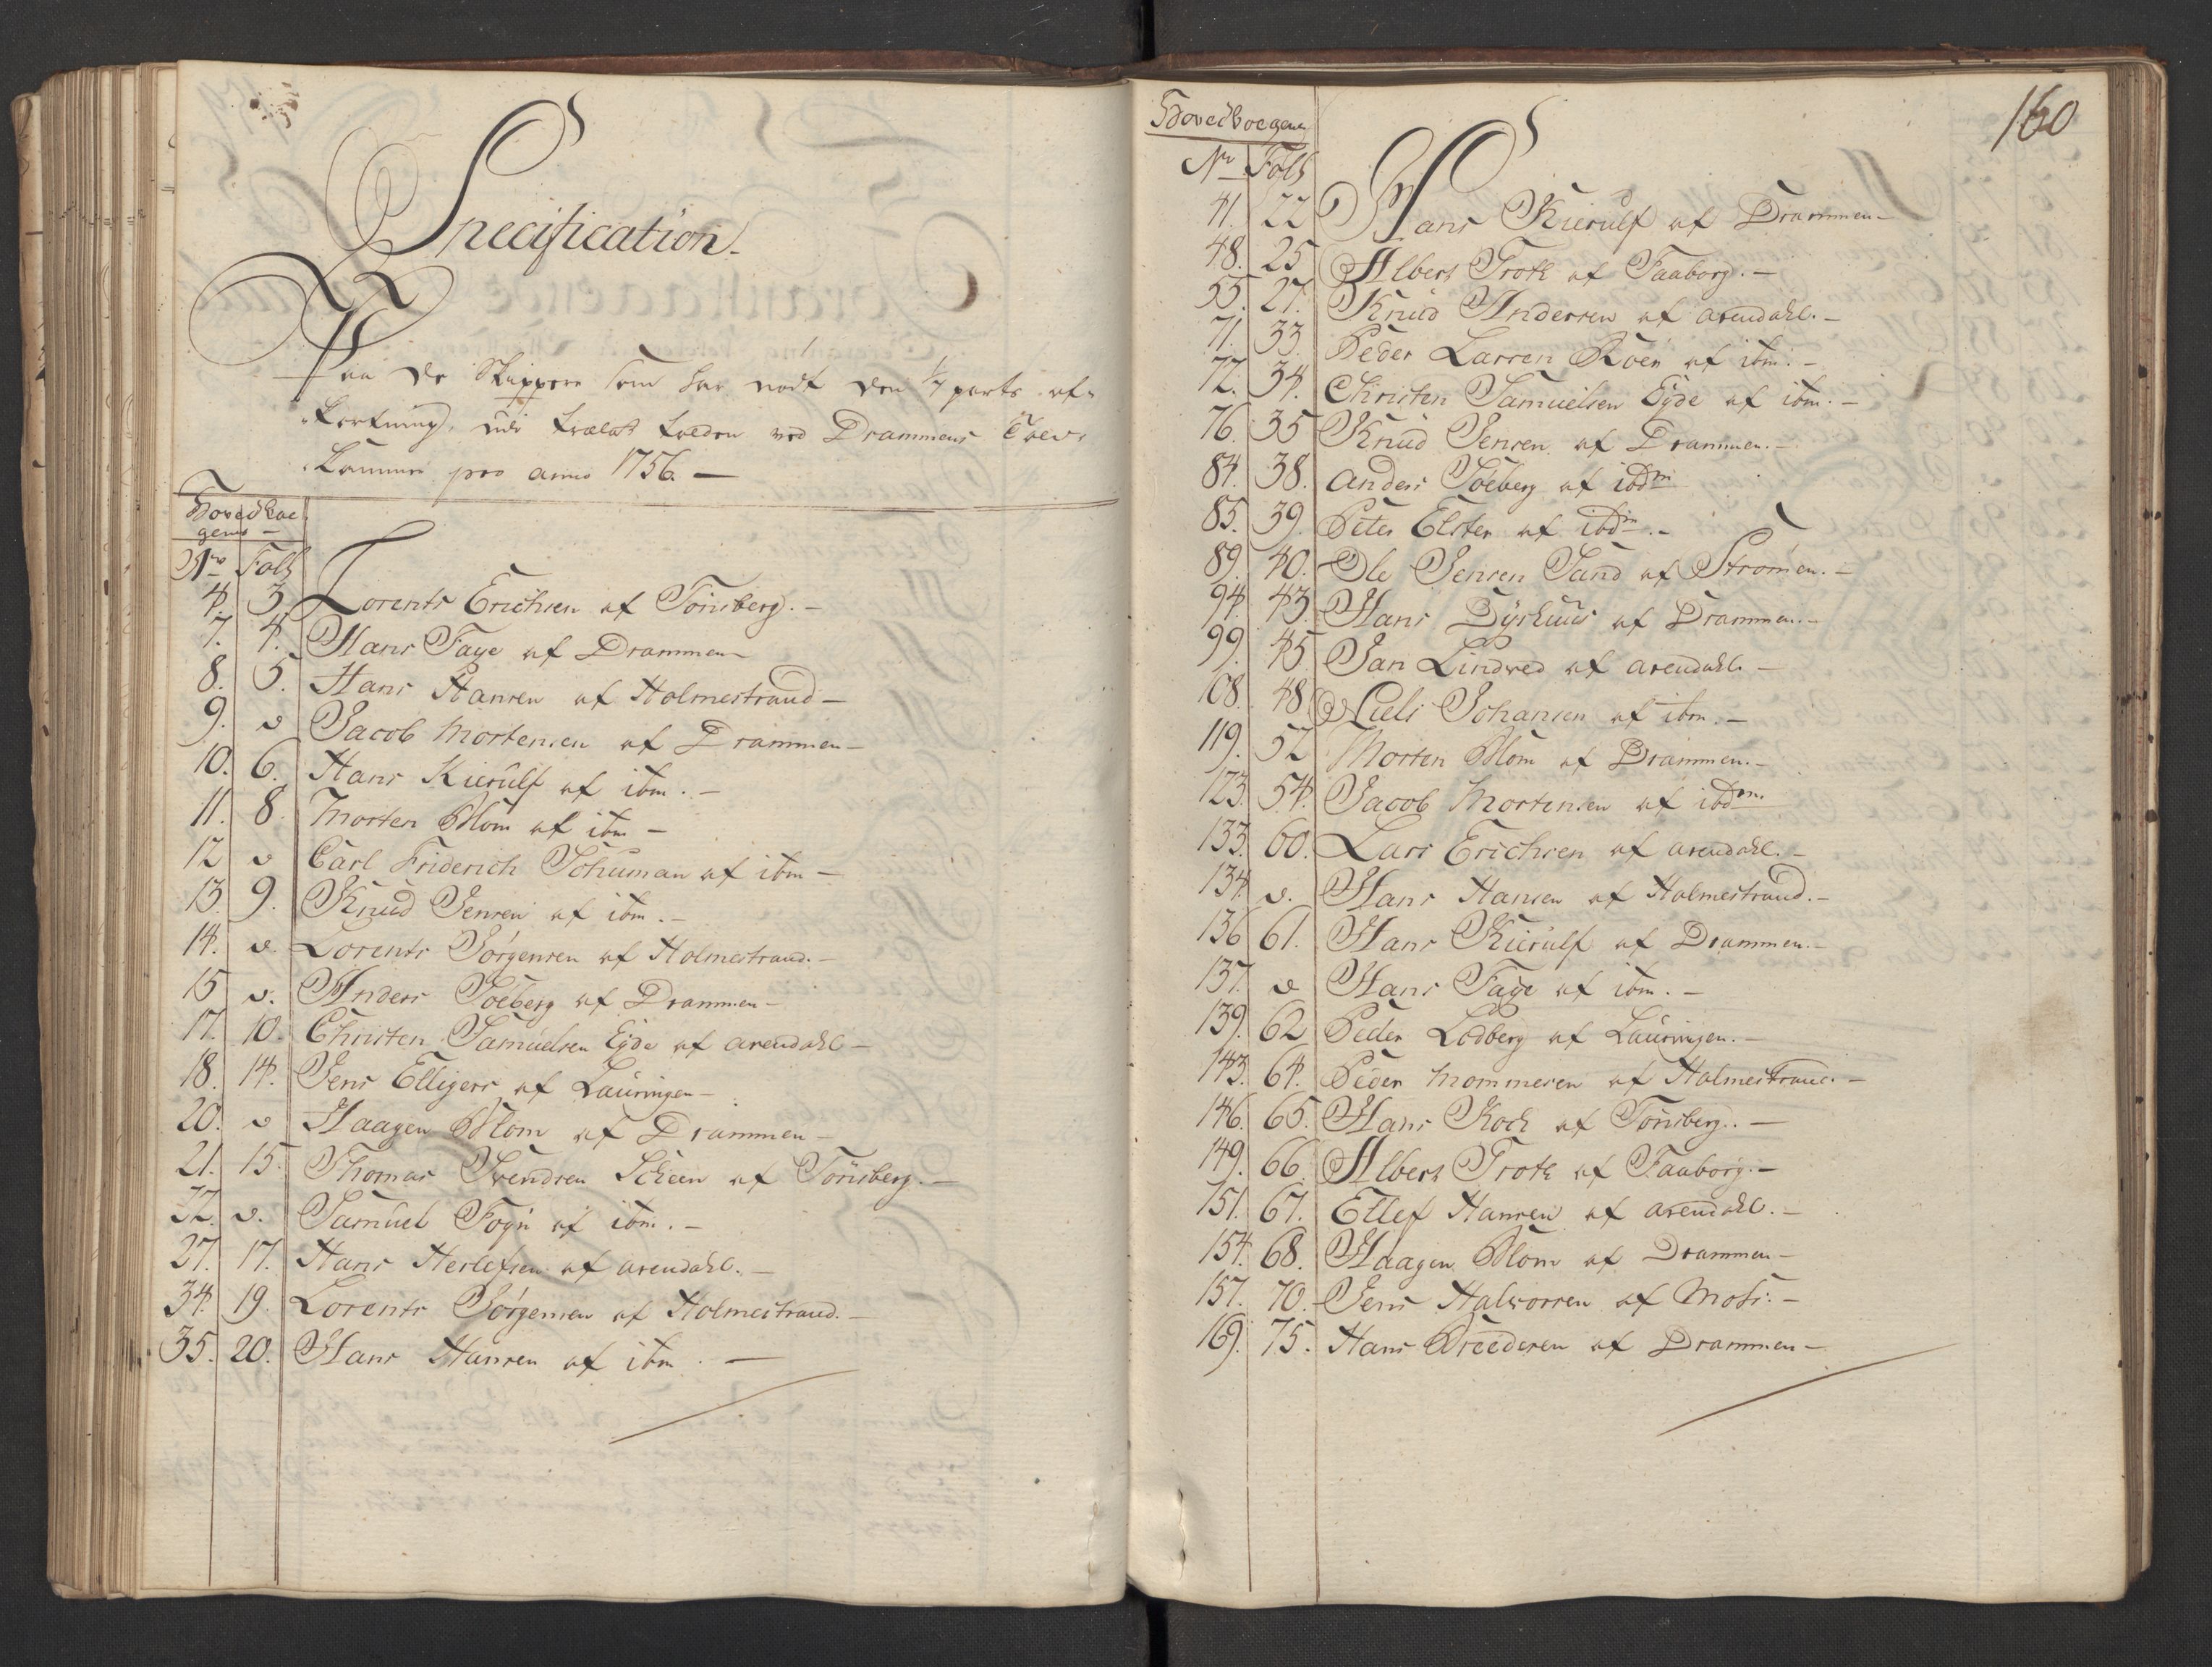 Specification.
Paa de Skippere som har nødt den 1/4 parts af-
kortning, udi trælast tolden ved Drammens Told-
Kammer pro anno 1756. —
Hovedboe
gens —
No Folio
4. 3. Lorents Erichsen af Tönsberg. —
7. 4. Hans Faye af Drammen —
8. 5. Hans Hansen af Holmestrand —
9. v Jacob Mortensen af Drammen —
10. 6. Hans Kierulf af ibm. —
11. 8. Morten Blom af ibm —
12 v Carl Friderich Schuman af ibm —
13. 9. Knud Jensen af ibm. —
14. v. Lorents Jörgensen af Holmestrand. —
15 v. Anders Soeberg af Drammen —
17. 10. Christen Samuelsen Eyde af arendahl —
18. 14. Jens Elligers af Lauringen —
20. v Haagen Blom af Drammen —
21. 15. Thomas Svendsen Scheen af Tönsberg. —
22. v. Samuel Foyn af ibm. —
27. 17. Hans Herlefsen af arendahl. —
34. 19. Lorents Jörgensen af Holmestrand. —
35. 20. Hans Hansen af ibm. —
160
Hovedboegens
No Folio
41. 22 Hans Kierulf af Drammen —
48. 25 Albert Trotk af Faaborg. —
55. 27. Knud Andersen af arendahl. —
71. 33. Peder Larsen Roer af ibm. —
72. 34. Christen Samuelsen Eyde af ibm. —
76. 35 Knud Jensen af Drammen. —
84. 38. anders Soeberg af ibdm
85. 39. Peter Elster af ibdm. —
89. 40. Ole Jensen Sand af Strömen. —
94. 43. Hans Dyrhuus af Drammen. —
99. 45. Jan Lindved af arendahl —
108. 48. Niels Johansen af ibm. —
119. 52 Morten Blom af Drammen. —
123. 54. Jacob Mortensen af ibdm.
133. 60. Lars Erichsen af arendahl. —
134. v. Hans Hansen af Holmestrand. —
136 61. Hans Kierulf af Drammen. —
137. v Hans Faye af ibm. —
139. 62 Peder Lodberg af Lauringen. —
143. 64. Peder Mommesen af Holmestrand. —
146. 65. Hans Koch af Tönsberg. —
149. 66. Albert Trotk af Faaborg. —
151. 67. Ellef Hansen af arendahl. —
154. 68. Haagen Blom af Drammen —
157. 70. Jens Halvorsen af Moss. —
169. 75. Hans Breedersen af Drammen —